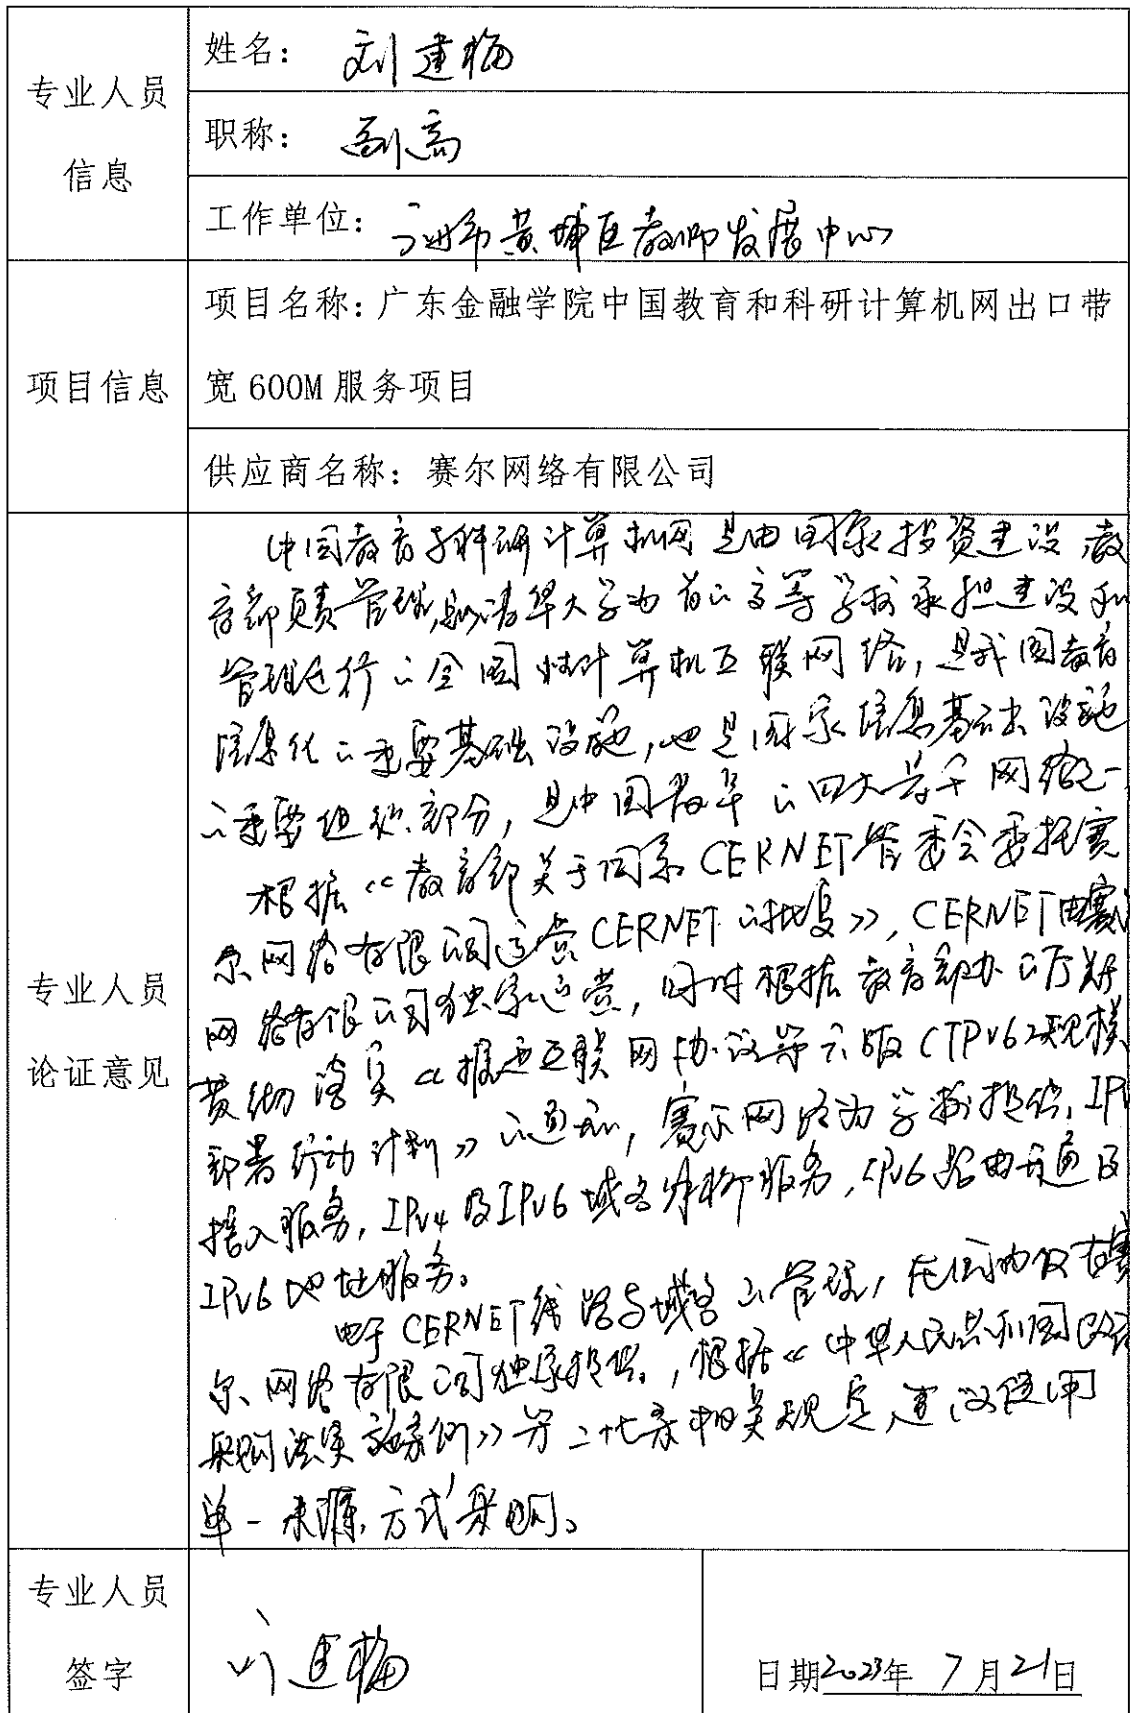 专业人员
信息
姓名：刘建梅
职称：副高
工作单位：广州市黄埔区教师发展中心
项目信息
项目名称：广东金融学院中国教育和科研计算机网出口带
宽 600M 服务项目
供应商名称：赛尔网络有限公司
专业人员
论证意见
中国教育与科研计算机网是由国家投资建设，教
育部负责管理，以清华大学为首的高等学校承担建设和
管理运行的全国性计算机互联网络，是我国教育
信息化的重要基础设施，也是国家信息基础设施
的重要组织部分，是中国最早的四大骨干网络之一
根据《教育部关于同意CERNET管委会委托赛
尔网络有限公司运营CERNET的批复》，CERNET由赛尔
网络有限公司独家运营，同时根据教育部办公厅关于
贯彻落实《推进互联网协议第六版(IPv6)规模
部署行动计划》的通知，赛尔网络为学校提供，IPv
接入服务，IPv4及IPv6域名解析服务，IPv6路由开通及
IPv6地址服务。
由于CERNET线路与域名的管理，在国内仅有赛
尔网络有限公司独家提供，根据《中华人民共和国政府
采购法实施条例》第二十七条相关规定，建议使用
单一来源方式采购。
专业人员
签字
刘建梅
日期2023年 7月21日